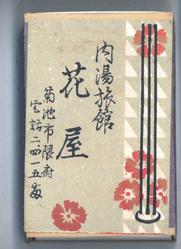 内湯旅館
花屋
菊池市隈府
電話二四一五番